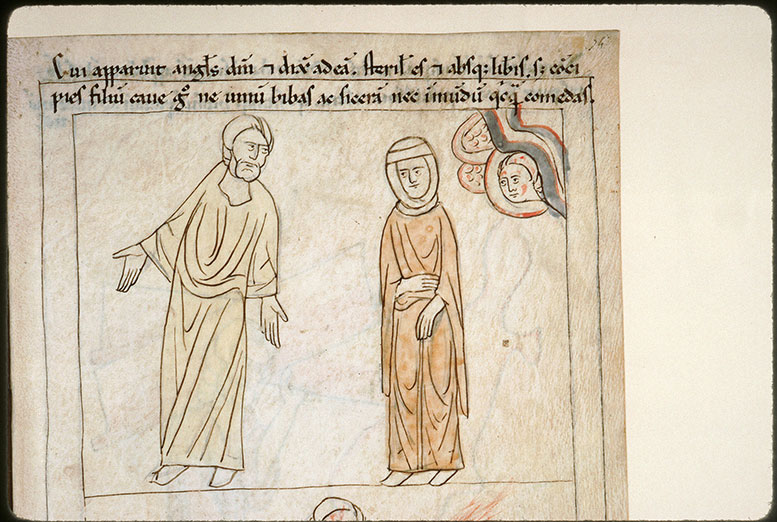 Cui apparuit angl's dn̄i ⁊ dix̄ ad eā. steril' es ⁊ absq; lib'is. s; cōci
pies filiū caue gͦ ne uinū bibas ac sicerā nec īmūdū qͥcq̄ comedas.